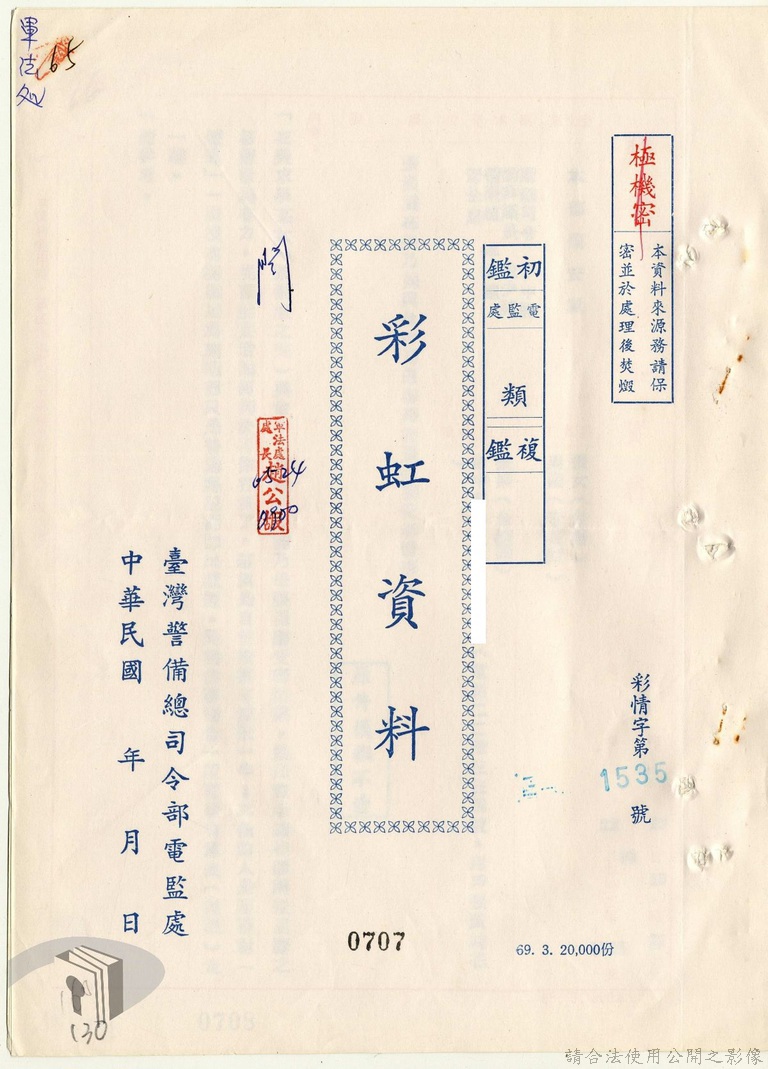 軍法處
65
極機密
本資料來源務請保
密並於處理後焚燬
初鑑
電監處
類
複鑑
彩虹資料
閱
軍法處
處長
趙公嚴
彩情字第1535號
臺灣警備總司令部電監處
中華民國 年 月 日
0707
69. 3. 20,000份
130
0708
請合法使用公開之影像